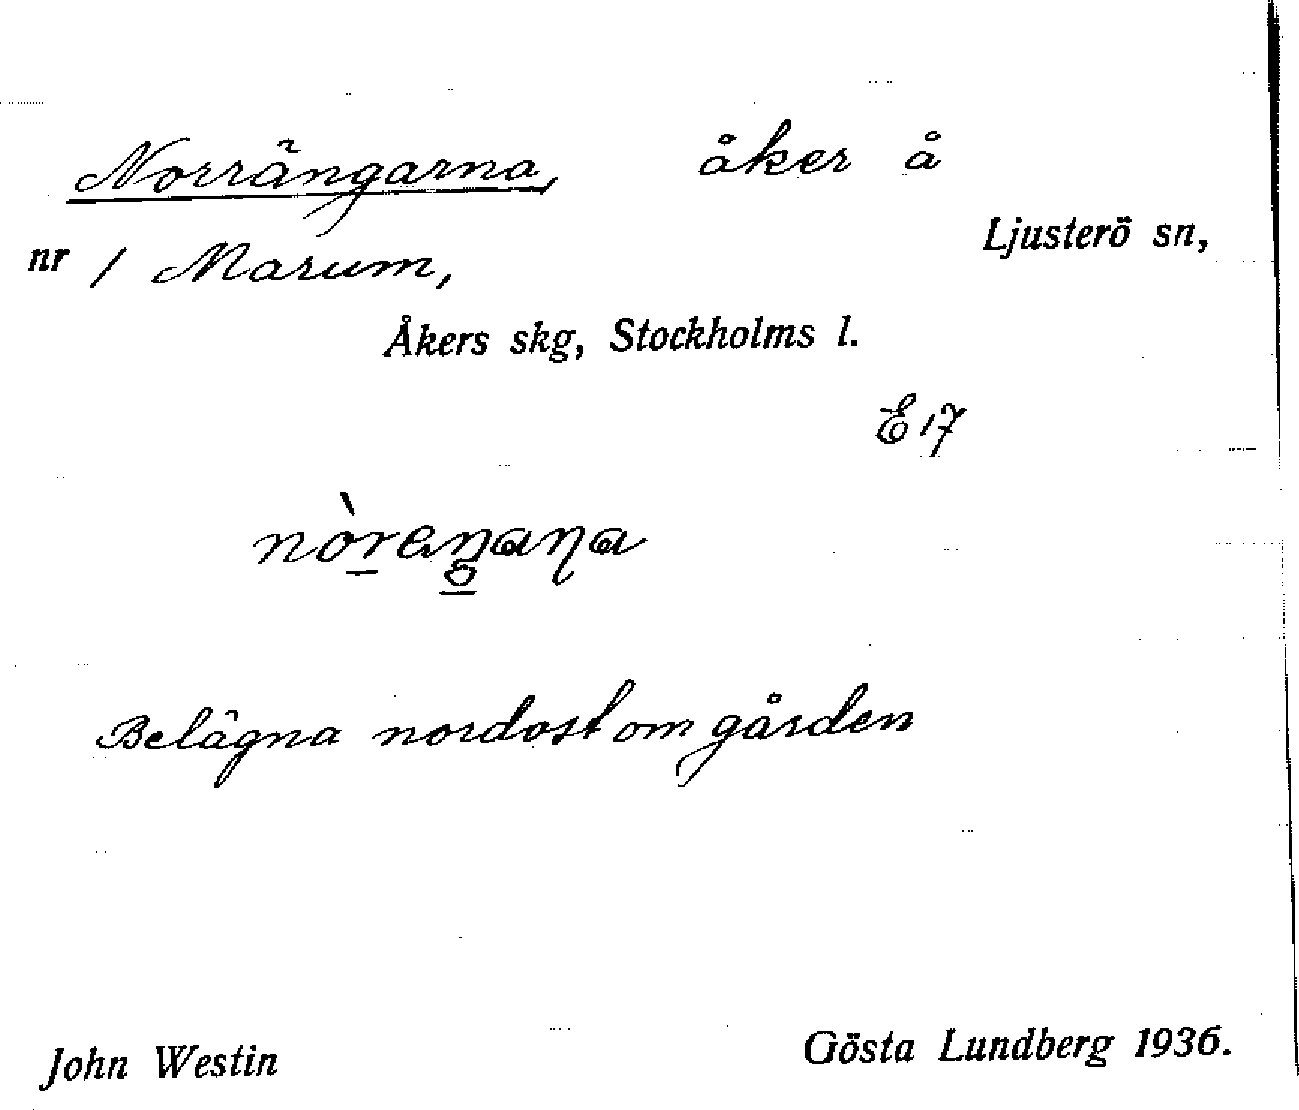 Norrängarna, åker å
Ljusterö sn,
nr 1 Marum,
Åkers skg, Stockholms l.
E 17
nòrengana
Belägna nordost om gården
John Westin Gösta Lundberg 1936.